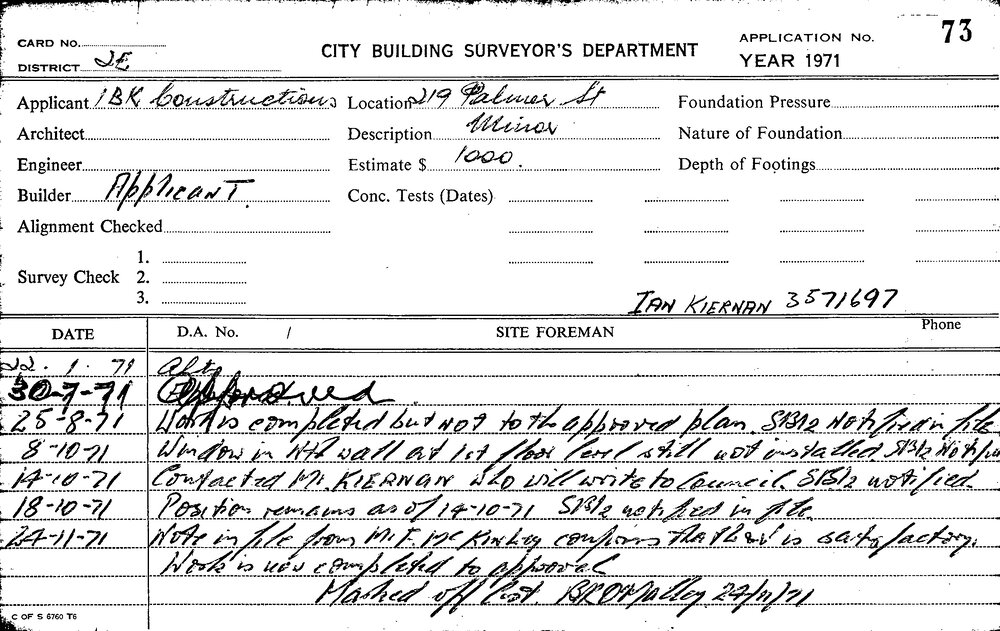 73
CARD No.
CITY BUILDING SURVEYOR'S DEPARTMENT
APPLICATION No.
DISTRICT 2E
YEAR 1971
Applicant IBK Constructions Location 219 Palmer St Foundation Pressure
Architect Description Minor Nature of Foundation
Engineer Estimate $ 1000. Depth of Footings
Builder Applicant Conc. Tests (Dates)
Alignment Checked
1.
Survey Check 2.
3.
IAN KIERNAN 3571697
DATE D.A. No. / SITE FOREMAN Phone
22.1.71
30-7-71 Approved
25-8-71 Work is completed but not to the approved plan. Notified in file
8-10-71 Window in wall at 1st floor level still not installed.
14-10-71 Contacted Mr. KIERNAN who will write to Council. notified.
18-10-71 Position remains as of 14-10-71 notified in file.
24-11-71 Note in file from Mr. confirms that is satisfactory.
Work is now completed to approval
Marked off 24/11/71
C OF S 6760 T6